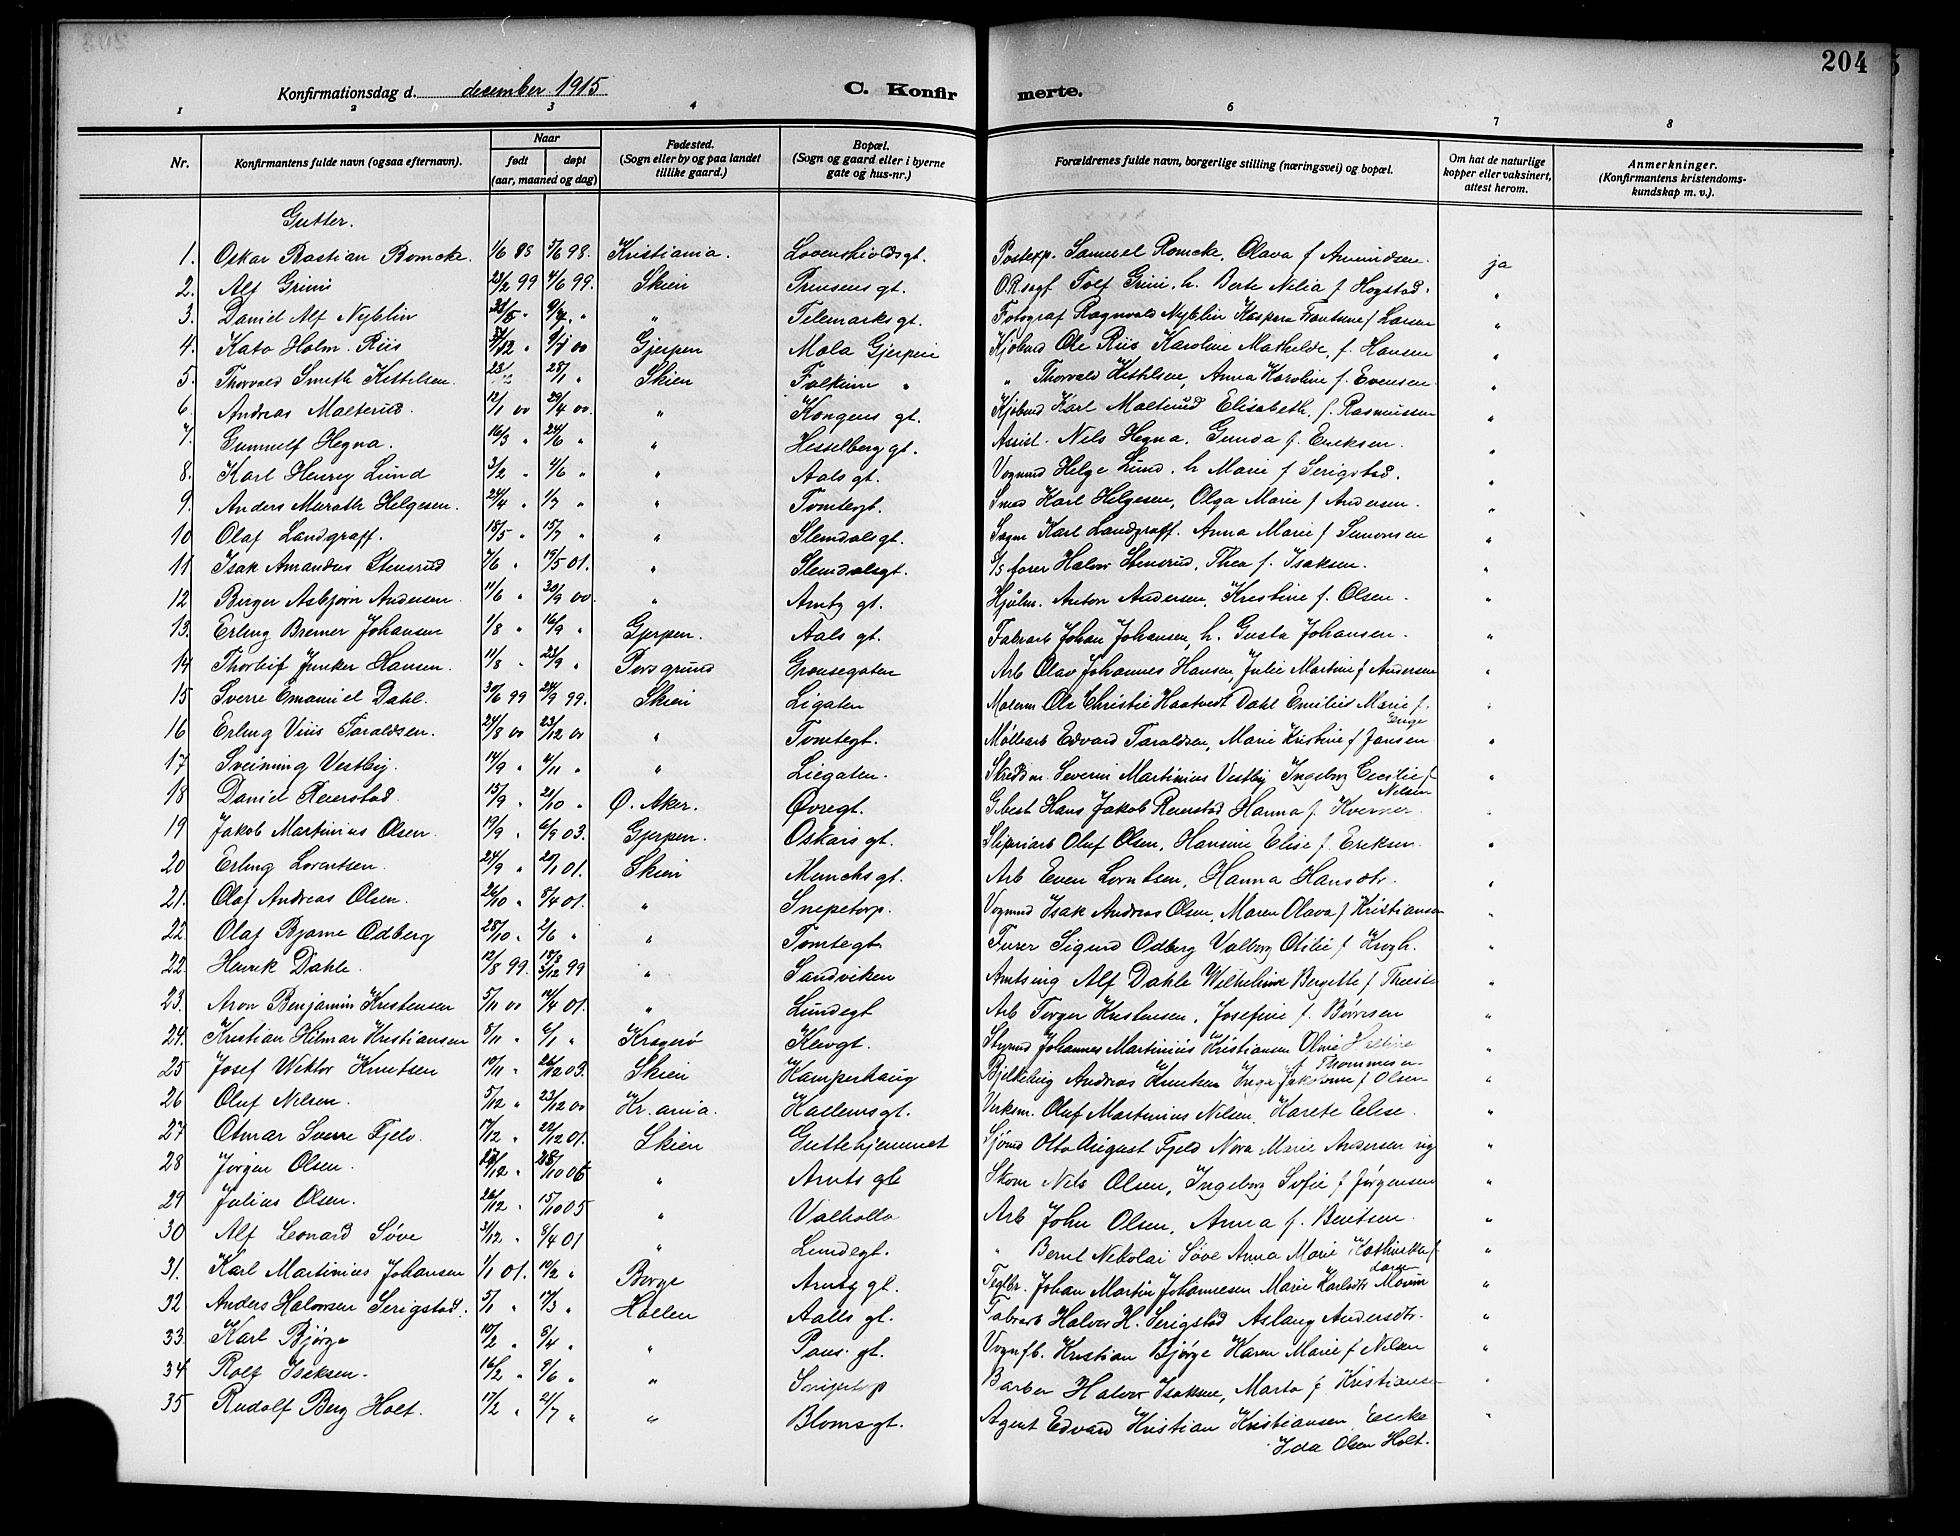 204
Konfirmationsdag d. desember 1915 C. Konfirmerte.
1 2 3 4 5 6 7 8
Nr. Konfirmantens fulde navn (ogsaa efternavn). Naar født døpt (aar, maaned og dag) Fødested. (Sogn eller by og paa landet tillike gaard.) Bopæl. (Sogn og gaard eller i byerne gate og hus-nr.) Forældrenes fulde navn, borgerlige stilling (næringsvei) og bopæl. Om hat de naturlige kopper eller vaksinert, attest herom. Anmerkninger. (Konfirmantens kristendomskundskap m. v.).
Gutter.
1. Oskar Bastian Romcke. 1/6 98 Kristiania. Løvenskioldsgt. Postexp. Samuel Romcke, Olava f Amundsen. ja
2. Alf Grini 4/6 99. Skien Prinsens gt. Tolf Grini, h. Berte Nilia f Hogstad. "
3. Daniel Alf Nyblin " Telemarks gt. Fotograf Ragnvald Nyblin Kaspara f Larsen "
4. Kato Holm Riis 9/1 00 Gjerpen Mæla Gjerpen Kjøbmd Ole Riis Karoline Mathilde f. Hansen "
5. Thorvald Smith Kittelsen. 28/1 " Skien Falkum " " Thorvald Kittilsen, Anna Karoline f. Evensen. "
6. Andreas Malterud. 12/1 00 29/4 00. " Kongens gt. Kjøbmd Karl Malterud Elisabeth f. Rasmussen "
7. Gunnulf Hegna. 16/3 " 24/6 " " Hesselberg gt. Assist. Nils Hegna, Gunda f. Eriksen. "
8. Karl Henry Lund 3/2 " 4/6 " " Aals gt. Vognmd Helge Lund. h Marie f Serigstad. "
9. Anders Marath Helgesen. 24/4 " 1/7 " " Tomtegt. Smed Karl Helgesen, Olga Marie f Andersen. "
10 Olaf Landgraff. 18/5 " 15/7 " " Slemdalsgt. Karl Landgraff. Anna Marie f Simonsen "
11 Isak Amandus Stensrud 7/6 " 19/5 01. " Slemdalsgt. S/s fører Halvor Stensrud, Thea f. Isaksen. "
12 Berger Asbjørn Andersen 11/6 " 30/9 00. " Arntz gt. Hjulm. Anton Andersen, Kristine f. Olsen. "
13. Erling Bremer Johansen 1/8 " 16/9 " Gjerpen. Aals gt. Fabrarb Johan Johansen, h. Gusta Johansen. "
14 Thorleif Junker Hansen. 11/8 " 23/9 " Porsgrund Grønsegaten Arb Olav Johannes Hansen, Julie Martine f Andersen "
15 Sverre Emaniel Dahl. 30/6 99 24/9 99. Skien Ligaten Malerm Ole Christie Haatvedt Dahl Emilie Marie f. Enge "
16 Erling Viis Taraldsen. 24/8 00 23/12 00 " Tomtegt. Møllearb Edvard Taraldsen, Marie Kristine f Jansen "
17 Sveining Vestby. 14/9 " 4/11 " " Liegaten. Skreddm. Severin Martinius Vestby Ingeborg Cecilie f Nilsen "
18 Daniel Reierstad. 15/9 " 21/10 " Ø. Aker. Øvregt. G.best Hans Jakob Reierstad Hanna f. Kverner. "
19 Jakob Martinius Olsen. 19/9 " 6/9 03. Gjerpen. Oskars gt. Sliperiarb Oluf Olsen, Hansine Elise f Eriksen. "
20 Erling Lorentsen. 24/9 " 20/1 01. Skien Munchs gt. Arb Even Lorntsen, Hanna Hansdtr. "
21. Olaf Andreas Olsen. 26/10 " 8/4 01. " Snipetorp. Vognmd Isak Andreas Olsen, Maren Olava f Kristiansen "
22. Olaf Bjarne Odberg 28/10 " 2/6 " " Tomtegt. Furer Sigurd Odberg Valborg Otilie f Krogh. "
22. Henrik Dahle. 12/8 99. 3/12 99 " Sandviken Amtsing Alf Dahle Wilhelmine Bergette f "
23. Aron Benjamin Kristensen 5/11 00 14/4 01. " Lundegt Arb Torger Kristensen, Josefine f. Børresen "
24. Kristian Hilmar Kristiansen 8/11 " 6/1 " Kragerø Kleivgt. Styrmd Johannes Martinius Kristiansen Oline f Thommesen "
25 Josef Wiktor Knutsen 10/11 " 26/12 03. Skien Kamperhaug Andreas Knutsen Inga Jakobine f Olsen "
26 Oluf Nilsen. 5/12 " 23/12 00 Kr.ania. Kallemsgt. Verksm. Oluf Martinius Nilsen Karete Elise. "
27 Otmar Sverre Fjeld. 17/12 " 22/12 01. Skien Guttehjemmet Sjømd Otto August Fjeld Nora Marie Andersen "
28 Jørgen Olsen. " Arnts gt Skom Nils Olsen, Ingeborg Sofie f Jørgensen "
29 Julius Olsen. 26/12 " 15/10 05 " Valhalla Arb John Olsen, Anna f. Bentsen. "
30 Alf Leonard Søve 31/12 " 8/4 01 " Lundegt. " Bernt Nikolai Søve Anna Marie Kathinka f. Larsen "
31. Karl Martinius Johansen 1/1 01. 10/2 " Borge Arntz gt. Teglbr. Johan Martin Johannesen Marie Karlsdtr "
32 Anders Halvorsen Serigstad. 5/1 " 17/3 " Hollen Aalls gt. Fabrarb Halvor H. Serigstad Aslaug Andersdtr. "
33. Karl Bjørge 10/2 " 8/4 " " Pans. gt. Vognfb. Kristian Bjørge Karen Marie f Nilsen "
34 Rolf Isaksen. 16/2 " 9/6 " " Snipetorp Barber Halvor Isaksen, Marta f Kristiansen "
35 Rudolf Berg Holt. 17/2 " 21/7 " " Blomsgt. Agent Edvard Kristian Kristiansen Enke Ida Olsen Holt. "